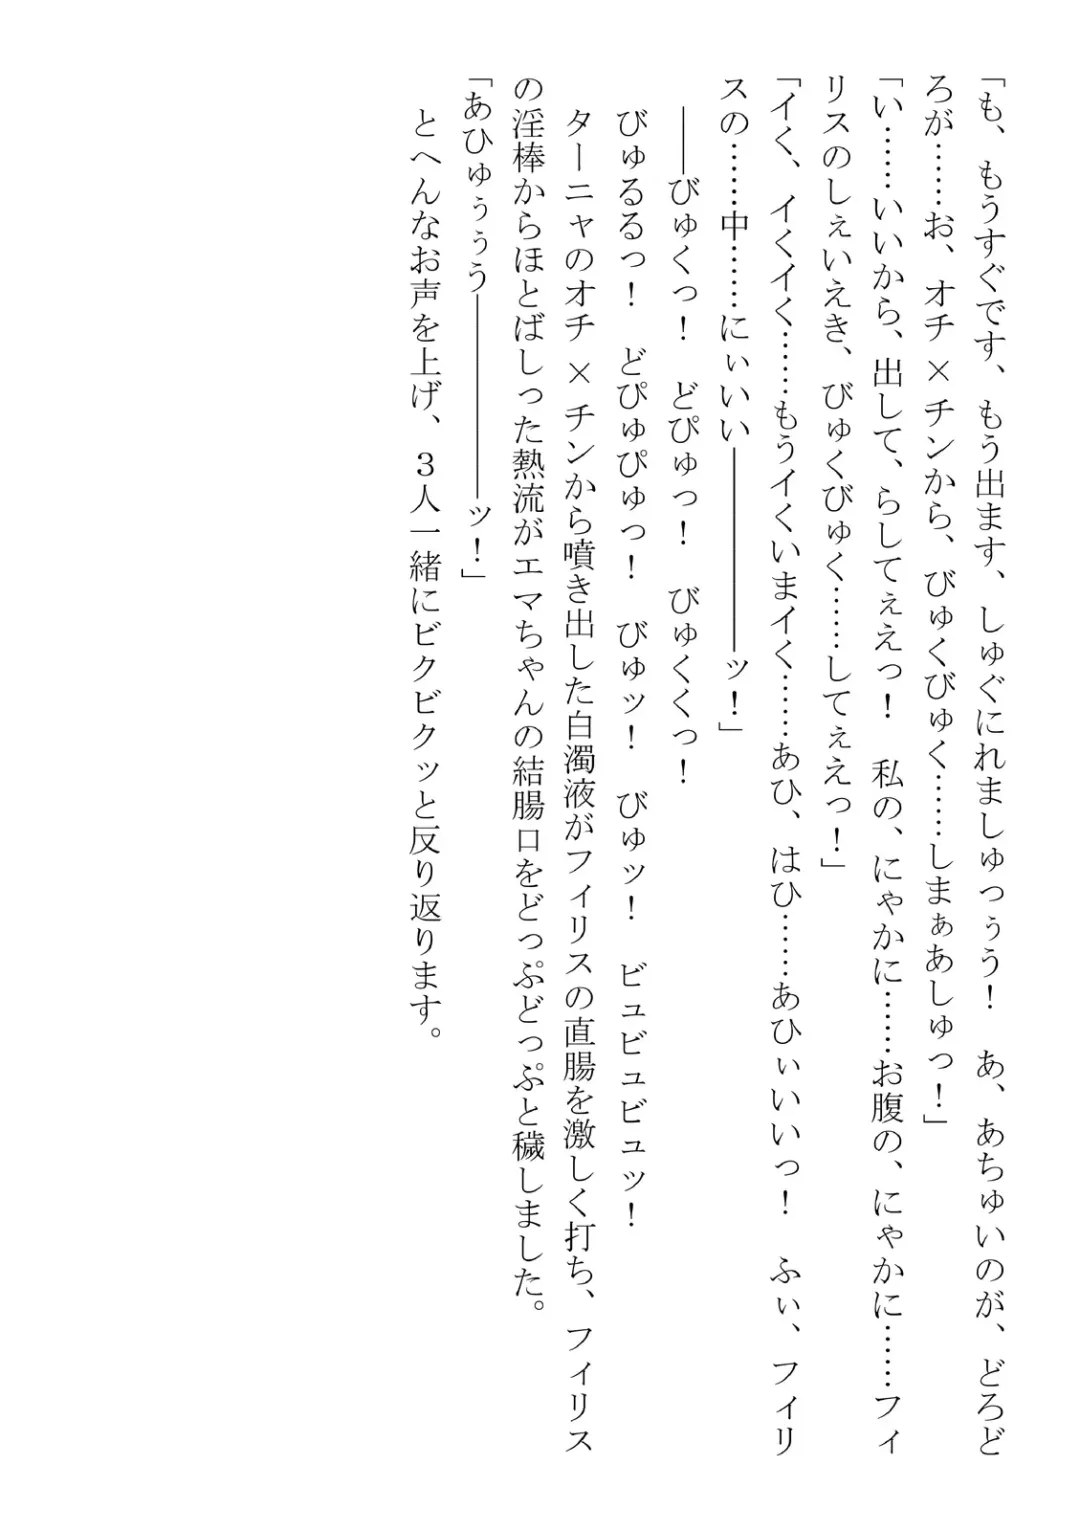 「も、もうすぐです、もう出ます、しゅぐにれましゅっぅう！　あ、あちゅいのが、どろど
ろが……お、オチ×チンから、びゅくびゅく……しまぁあしゅっ！」
「い……いいから、出して、らしてぇえっ！　私の、にゃかに……お腹の、にゃかに……フィ
リスのしぇいえき、びゅくびゅく……してぇえっ！」
「イく、イくイく……もうイくいまイく……あひ、はひ……あひぃいいっ！　ふぃ、フィリ
スの……中……にぃいい――――――ッ！」
――びゅくっ！　どぴゅっ！　びゅくくっ！
びゅるるっ！　どぴゅぴゅっ！　びゅッ！　びゅッ！　ビュビュビュッ！
ターニャのオチ×チンから噴き出した白濁液がフィリスの直腸を激しく打ち、フィリス
の淫棒からほとばしった熱流がエマちゃんの結腸口をどっぷどっぷと穢しました。
「あひゅぅぅう――――――ッ！」
とへんなお声を上げ、３人一緒にビクビクッと反り返ります。